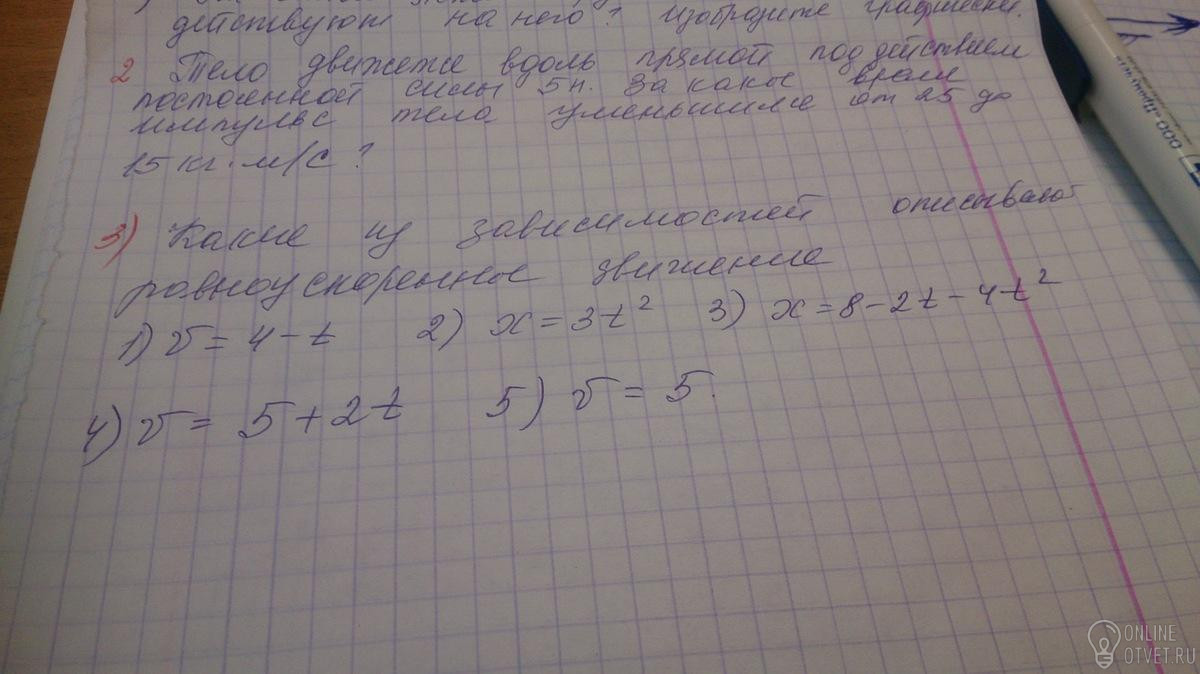 действуют на него? Изобразите графически.
2 Тело движеже вдоль прямой под действием
постоянной силы 5 н. За какое время
импульс тела уменьшился от 25 до
15 кг·м/с?
3) Какие из зависимостей описывают
равноускоренное движение
1) v = 4 - t 2) x = 3t² 3) x = 8 - 2t - 4t²
4) v = 5 + 2t 5) v = 5.
ООО
ONLINE
OTVET.RU